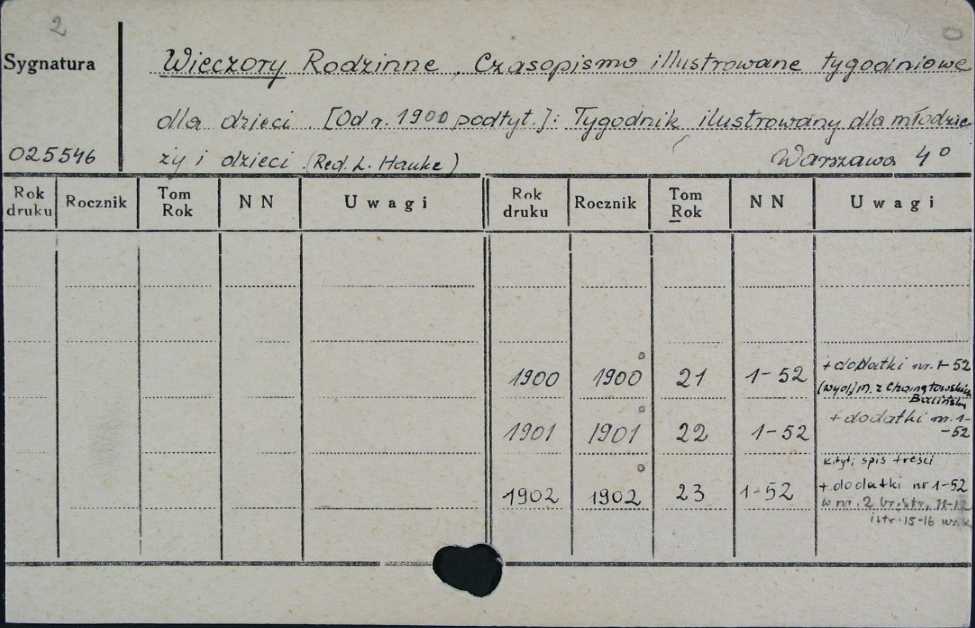 2
Sygnatura
Wieczory Rodzinne, Czasopismo illustrowane tygodniowe
dla dzieci. [Od r. 1900 podtyt.]: Tygodnik ilustrowany dla młodzie-
025546
ży i dzieci (Red. L. Hauke) Warszawa 4°
Rok druku Rocznik Tom Rok NN Uwagi Rok druku Rocznik Tom Rok NN Uwagi
1900 1900 21 1-52 + dodatki nr. 1-52
M. z
Baliński
1901 1901 22 1-52 + dodatki nr. 1-
-52
k. tyt. i spis treści
1902 1902 23 1-52 + dodatki nr 1-52
w nr. 2 br. str. 11-12
i str. 15-16